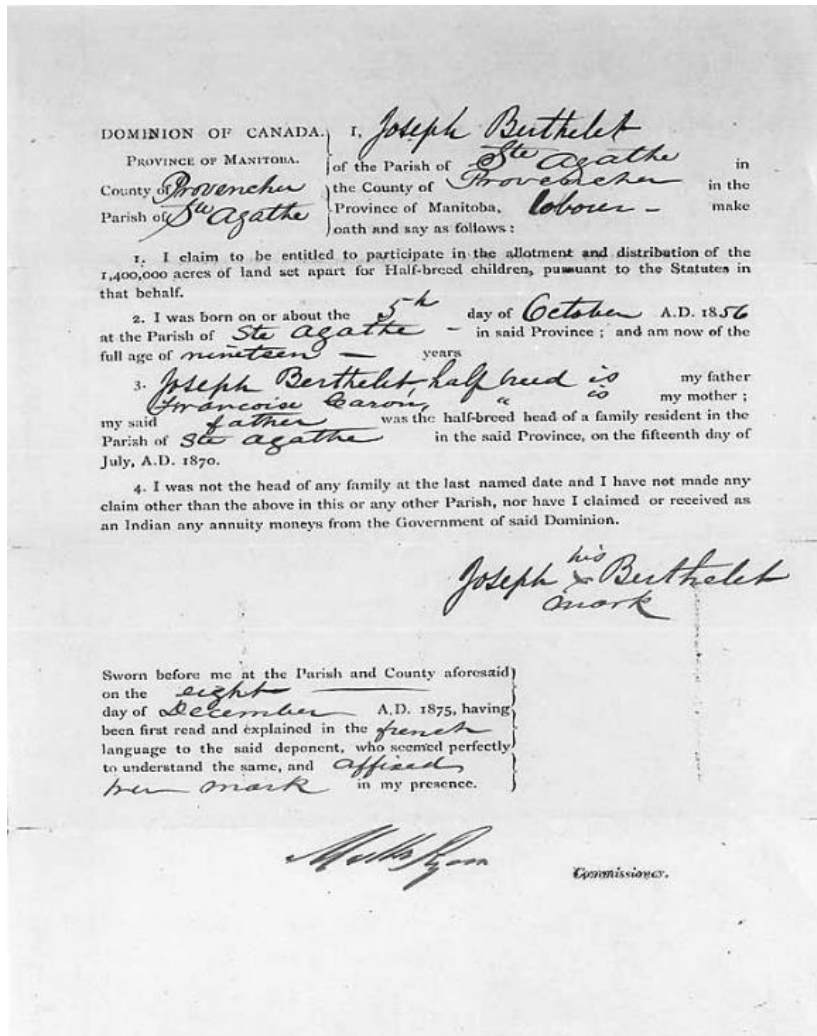 DOMINION OF CANADA. I, Joseph Berthelet
PROVINCE OF MANITOBA. of the Parish of Ste Agathe in
County of Provencher the County of Provencher in the
Parish of Ste Agathe Province of Manitoba, labour - make
oath and say as follows :
1. I claim to be entitled to participate in the allotment and distribution of the
1,400,000 acres of land set apart for Half-breed children, pursuant to the Statutes in
that behalf.
2. I was born on or about the 5th day of October A.D. 1856
at the Parish of Ste Agathe - in said Province ; and am now of the
full age of nineteen - years
3. Joseph Berthelet, half breed is my father
Francoise Caron, " is my mother ;
my said father was the half-breed head of a family resident in the
Parish of Ste Agathe in the said Province, on the fifteenth day of
July, A.D. 1870.
4. I was not the head of any family at the last named date and I have not made any
claim other than the above in this or any other Parish, nor have I claimed or received as
an Indian any annuity moneys from the Government of said Dominion.
his
Joseph x Berthelet
mark
Sworn before me at the Parish and County aforesaid
on the eight
day of December A.D. 1875, having
been first read and explained in the french
language to the said deponent, who seemed perfectly
to understand the same, and affixed
mark in my presence.
Ryan
Commissioner.